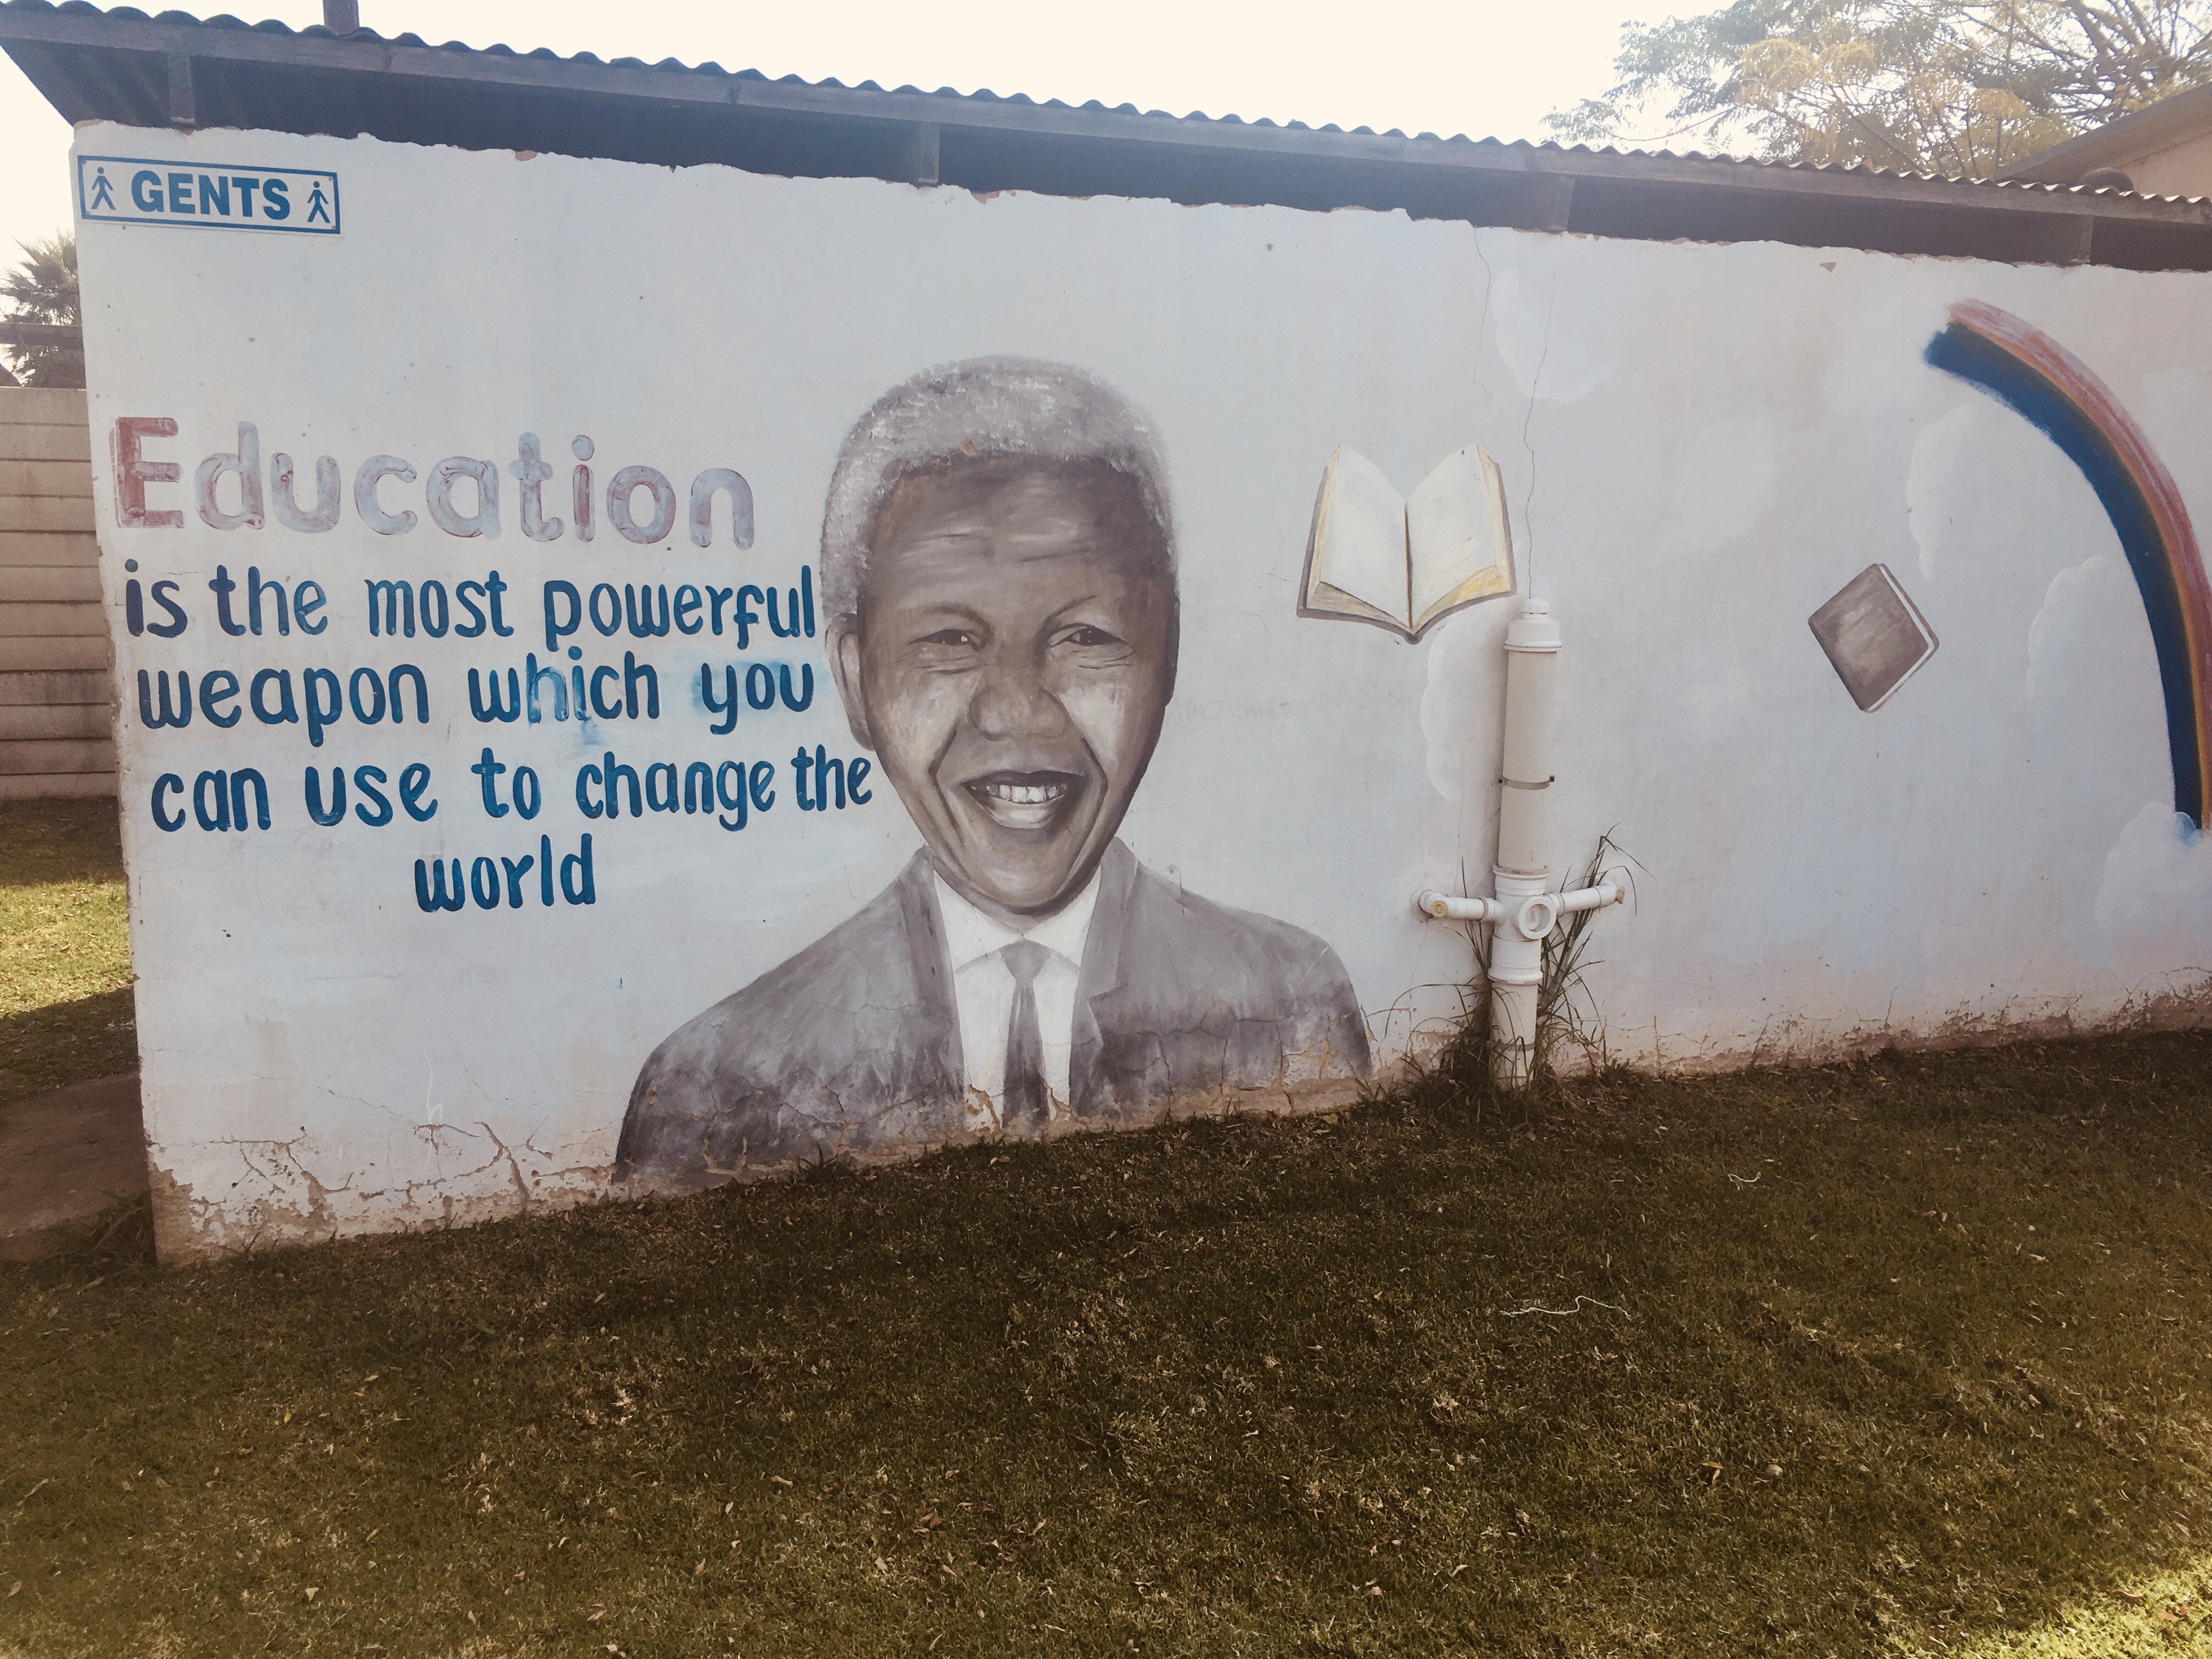 GENTS
Education
is the most powerful
weapon which you
can use to change the
world